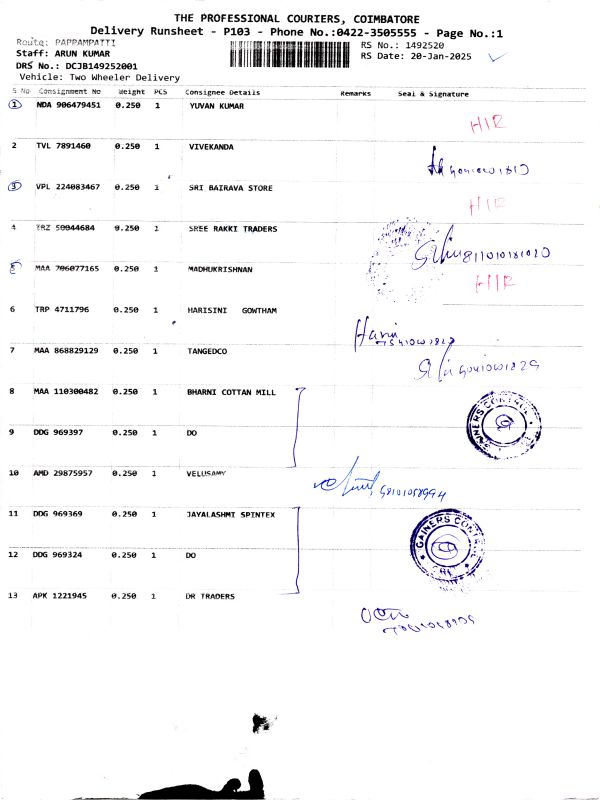 THE PROFESSIONAL COURIERS, COIMBATORE
Delivery Runsheet - P103 - Phone No.:0422-3505555 - Page No.:1
Route: PAPPAMPATTI RS No.: 1492520
Staff: ARUN KUMAR RS Date: 20-Jan-2025
DRS No.: DCJB149252001
Vehicle: Two Wheeler Delivery
S No Consignment No Weight PCS Consignee Details Remarks Seal & Signature
1 NDA 906479451 0.250 1 YUVAN KUMAR HIR
2 TVL 7891460 0.250 1 VIVEKANDA
3 VPL 224083467 0.250 1 SRI BAIRAVA STORE HIR
4 TRZ 50044684 0.250 1 SREE RAKKI TRADERS
5 MAA 706077165 0.250 1 MADHUKRISHNAN HIR
6 TRP 4711796 0.250 1 HARISINI GOWTHAM
7 MAA 868829129 0.250 1 TANGEDCO
8 MAA 110300482 0.250 1 BHARNI COTTAN MILL
GAINERS CONTROL
9 DDG 969397 0.250 1 DO
10 AMD 29875957 0.250 1 VELUSAMY
11 DDG 969369 0.250 1 JAYALASHMI SPINTEX
GAINERS CONTROL
12 DDG 969324 0.250 1 DO
13 APK 1221945 0.250 1 DR TRADERS